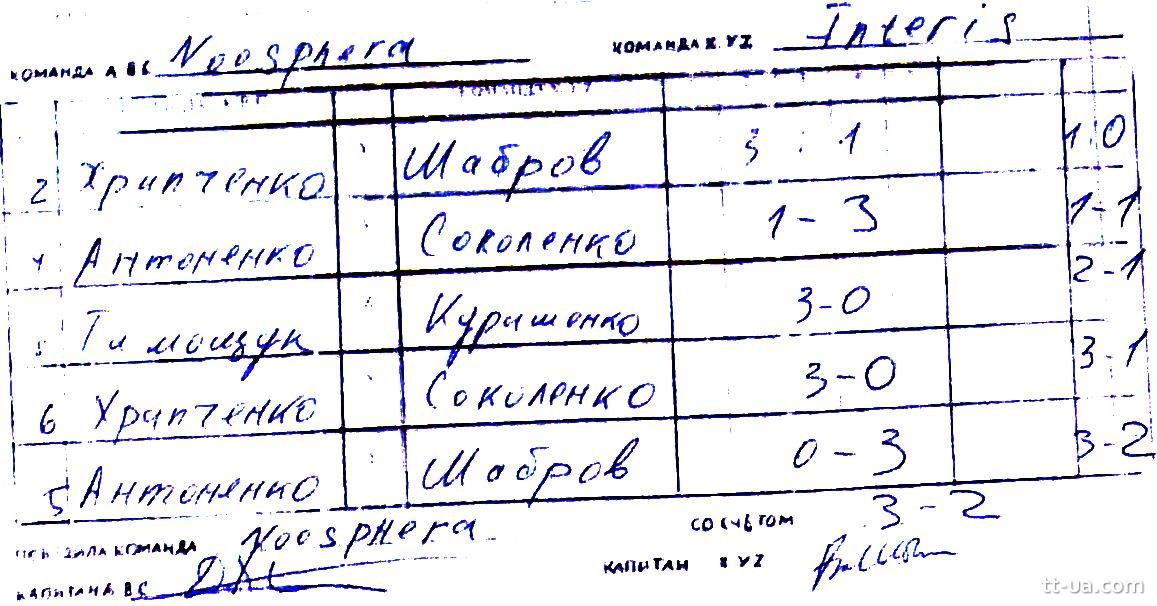 КОМАНДА А ВС Noosphera КОМАНДА X YZ Interis
2 Хрипченко Шабров 3 : 1 1:0
Антоненко Соколенко 1-3 1-1
Тимощук Куришенко 3-0 2-1
6 Хрипченко Соколенко 3-0 3-1
5 Антоненко Шабров 0-3 3-2
КОМАНДА Noosphera СО СЧЕТОМ 3-2
КАПИТАН А ВС КАПИТАН X YZ
tt-ua.com